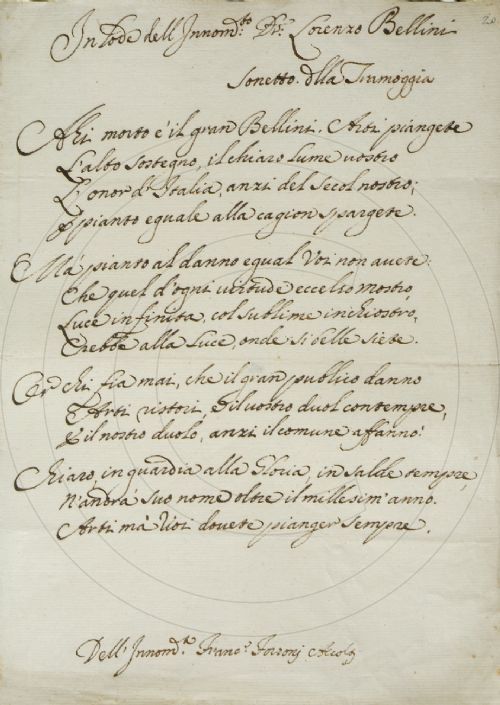 20
In Lode dell'Innom.to Dr. Lorenzo Bellini
Sonetto. dlla Tramoggia
Ahi morto è il gran Bellini. Arti piangete
L'alto sostegno, il chiaro lume vostro
L'onor d'Italia, anzi del secol nostro;
E pianto eguale alla cagion spargete.
Mà pianto al danno egual Voi non avete:
Che quel d'ogni virtude eccelso mostro
Luce infinita, col sublime inchiostro,
Crebbe alla Luce, onde si belle siete.
Or chi fia mai, che il gran publico danno
O Arti ristori, e il vostro duol contempre,
E il nostro duolo, anzi il comune affanno?
Chiaro, in guardia alla Gloria, in salde tempre,
N'andrà suo nome oltre il millesim'anno.
Arti mà Voi dovete pianger sempre.
Dell'Innom.to Franc.o